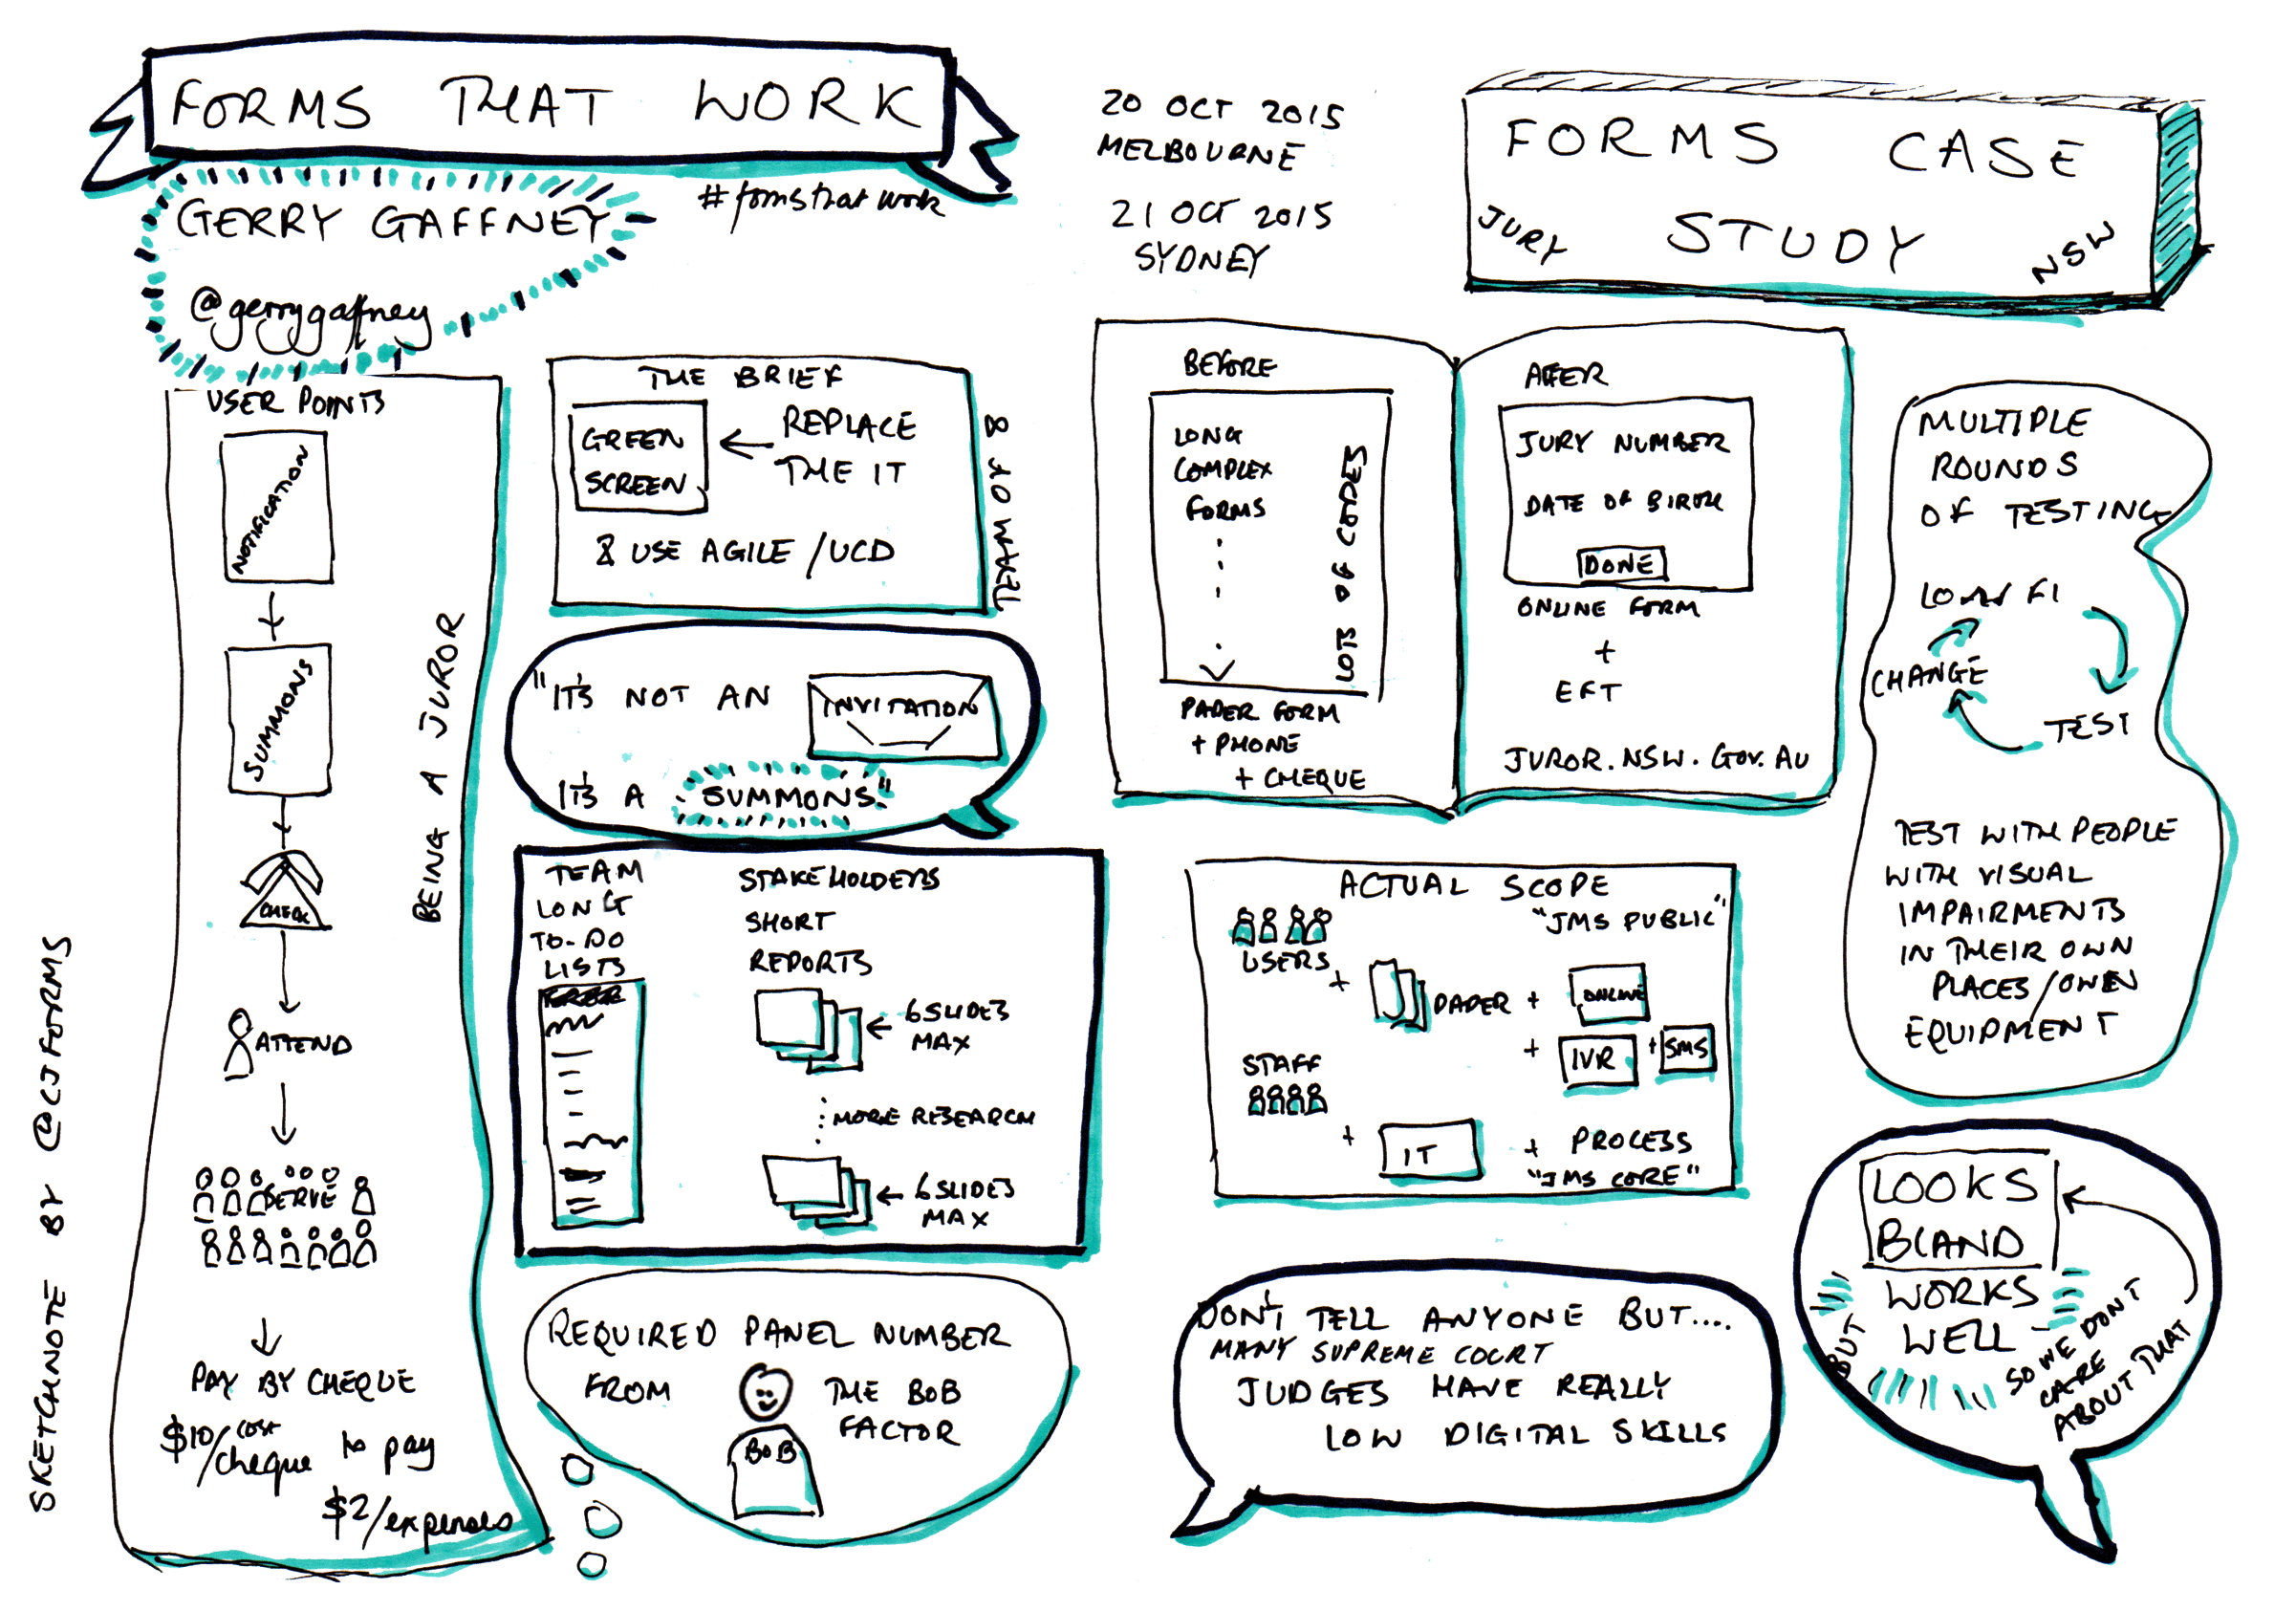 FORMS THAT WORK
GERRY GAFFNEY
@gerrygaffney
#formsthatwork
20 OCT 2015
MELBOURNE
21 OCT 2015
SYDNEY
FORMS CASE
STUDY
JURY
NSW
USER POINTS
NOTIFICATION
SUMMONS
CHECK
ATTEND
SERVE
PAY BY CHEQUE
$10/cost
cheque to pay
$2/expenses
BEING A JUROR
THE BRIEF
GREEN
SCREEN
REPLACE
THE IT
& USE AGILE/UCD
TEAM OF 8
"IT'S NOT AN
INVITATION
IT'S A SUMMONS."
TEAM
LONG
TO-DO
LISTS
STAKEHOLDERS
SHORT
REPORTS
6 SLIDES
MAX
MORE RESEARCH
6 SLIDES
MAX
REQUIRED PANEL NUMBER
FROM
BOB
THE BOB
FACTOR
BEFORE
LONG
COMPLEX
FORMS
LOTS OF CODES
PAPER FORM
+ PHONE
+ CHEQUE
AFTER
JURY NUMBER
DATE OF BIRTH
DONE
ONLINE FORM
+
EFT
JUROR.NSW.GOV.AU
MULTIPLE
ROUNDS
OF TESTING
FI
TEST
CHANGE
TEST WITH PEOPLE
WITH VISUAL
IMPAIRMENTS
IN THEIR OWN
PLACES/OWN
EQUIPMENT
ACTUAL SCOPE
"JMS PUBLIC"
USERS
+ PAPER + ONLINE
+ IVR + SMS
STAFF
+ IT + PROCESS
"JMS CORE"
DON'T TELL ANYONE BUT....
MANY SUPREME COURT
JUDGES HAVE REALLY
LOW DIGITAL SKILLS
LOOKS
BLAND
BUT
WORKS
WELL
SO WE DON'T
CARE
ABOUT THAT
SKETCHNOTE BY @CJFORMS